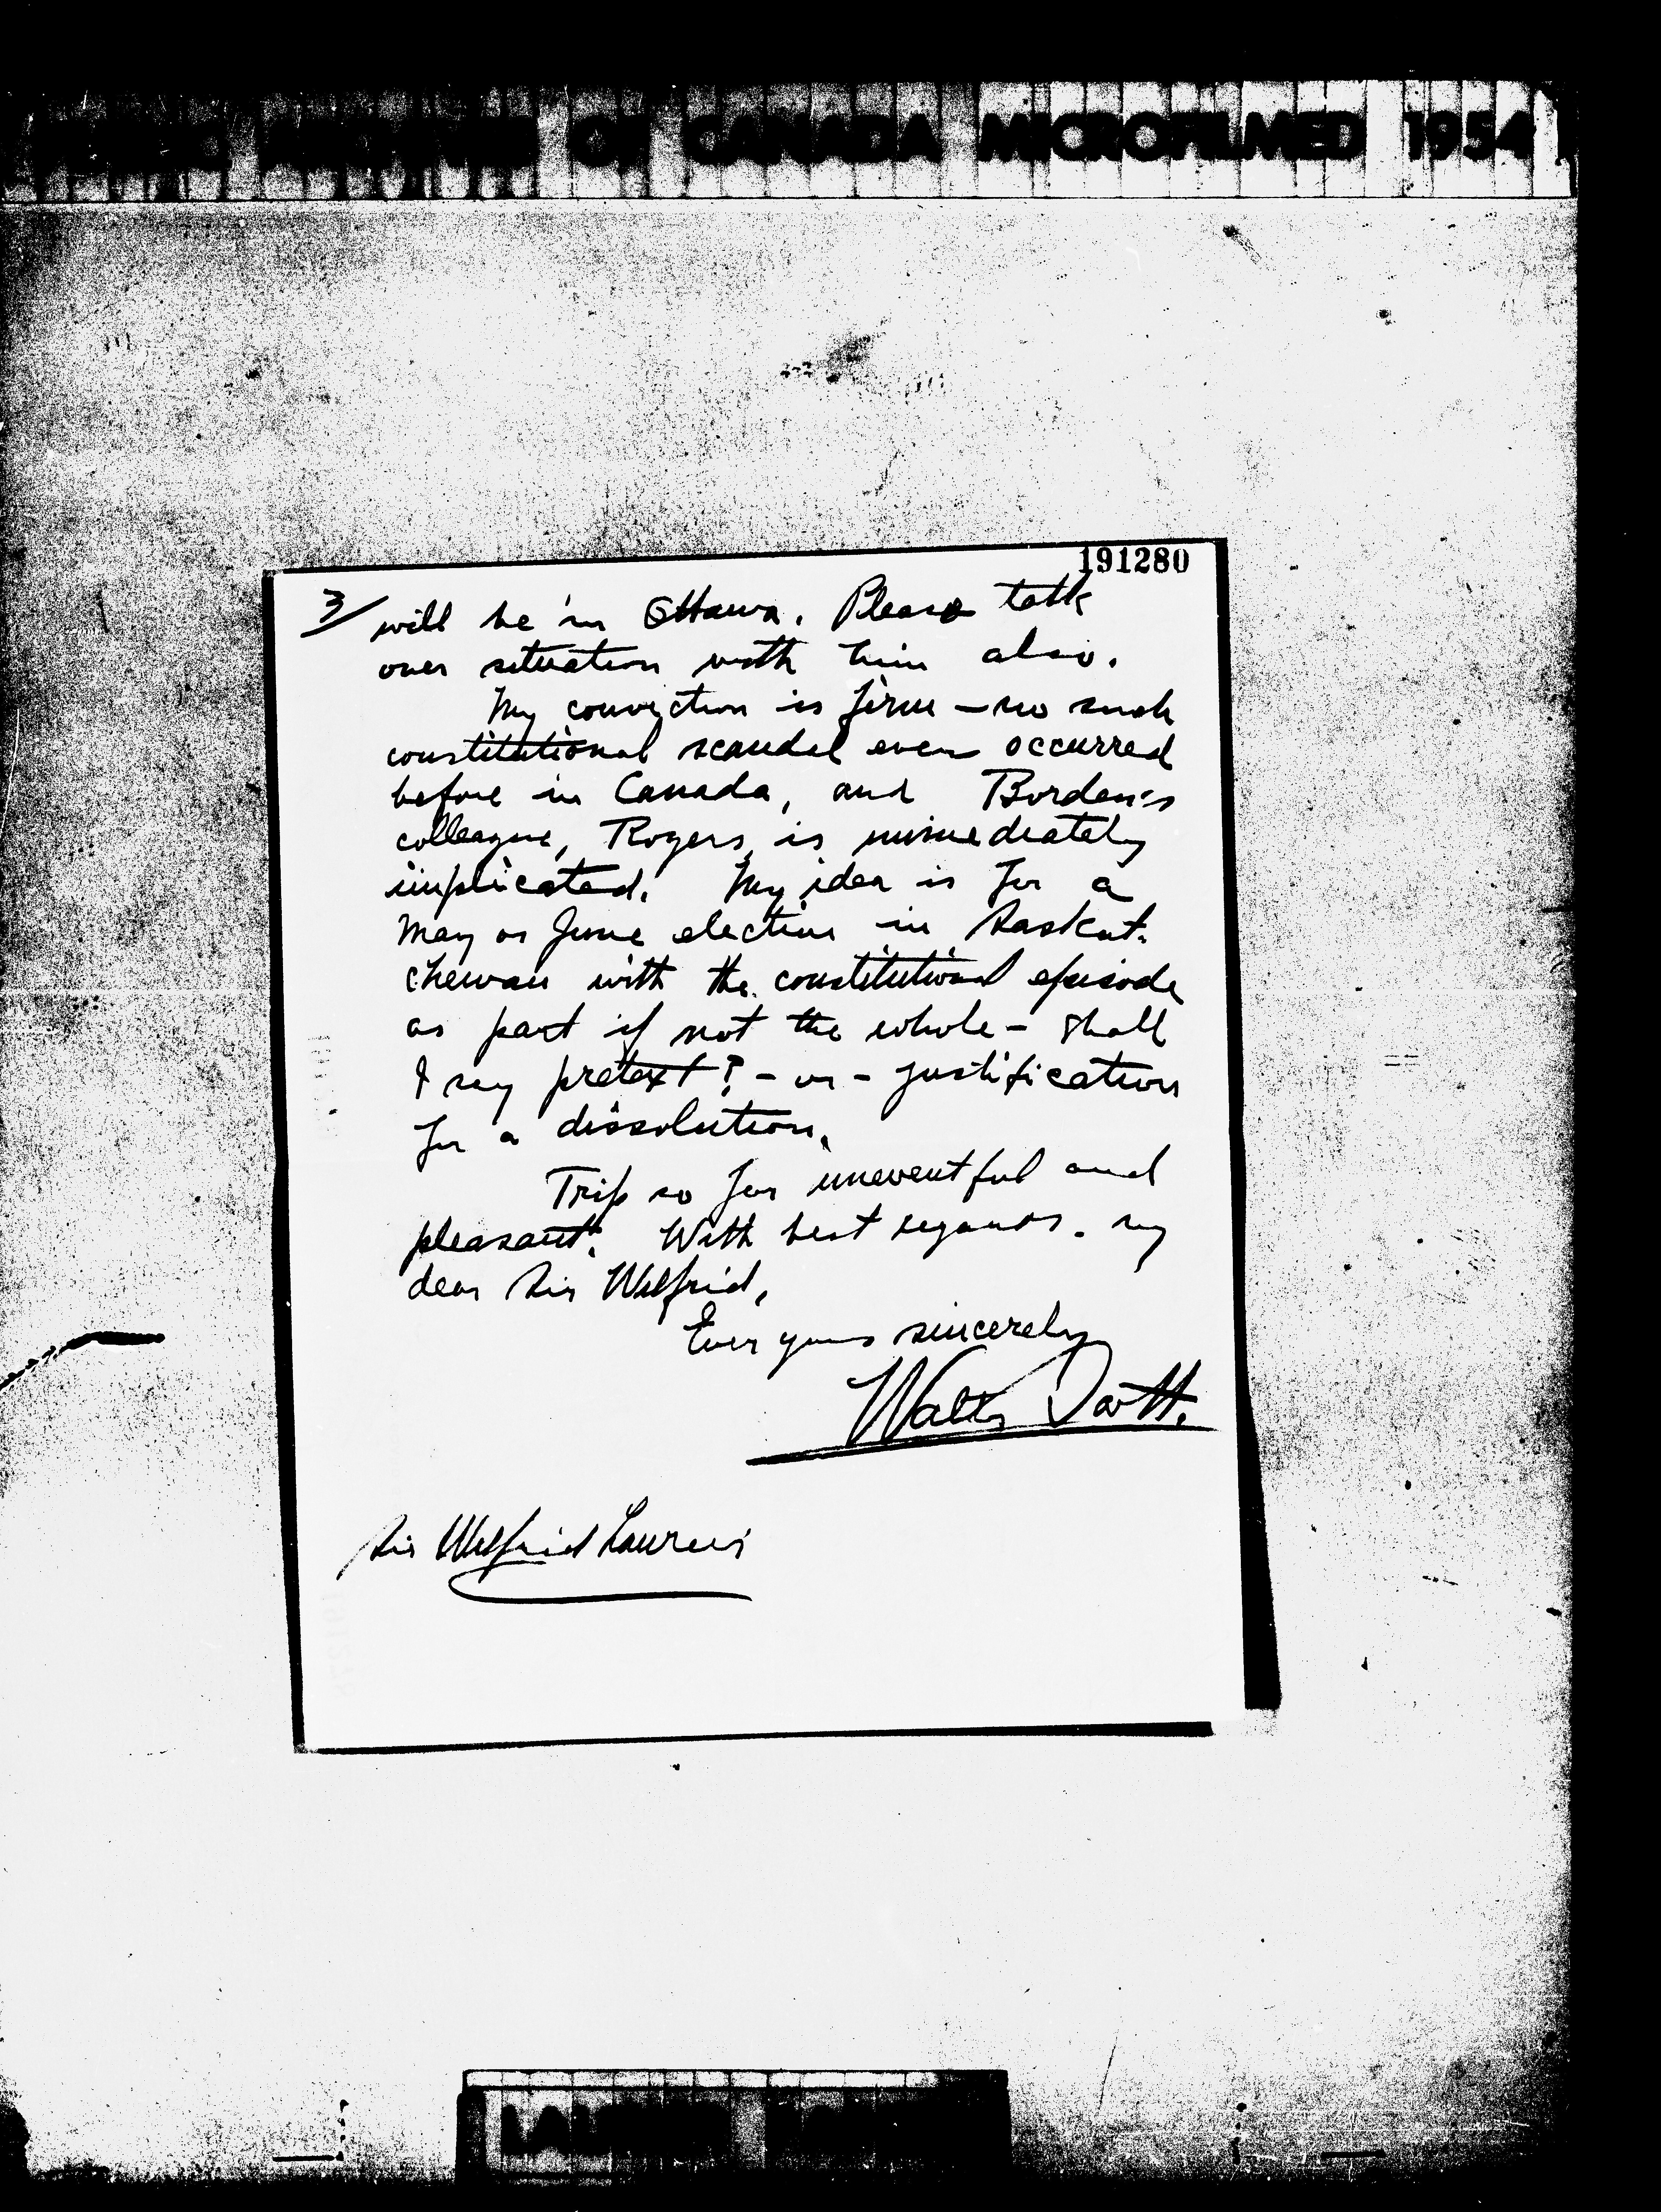 OF CANADA MICROFILMED 1954
191280
3/ will be in Ottawa. Please talk
over situation with him also.
My conviction is firm – no such
constitutional scandal ever occurred
before in Canada, and Borden's
colleague, Rogers, is immediately
implicated. My idea is for a
May or June election in Saskat-
chewan with the constitutional episode
as part if not the whole – shall
I say pretext? – or – justification
for a dissolution.
Trip so far uneventful and
pleasant. With best regards. my
dear Sir Wilfrid,
Ever yours sincerely
Walter Scott.
Sir Wilfrid Laurier